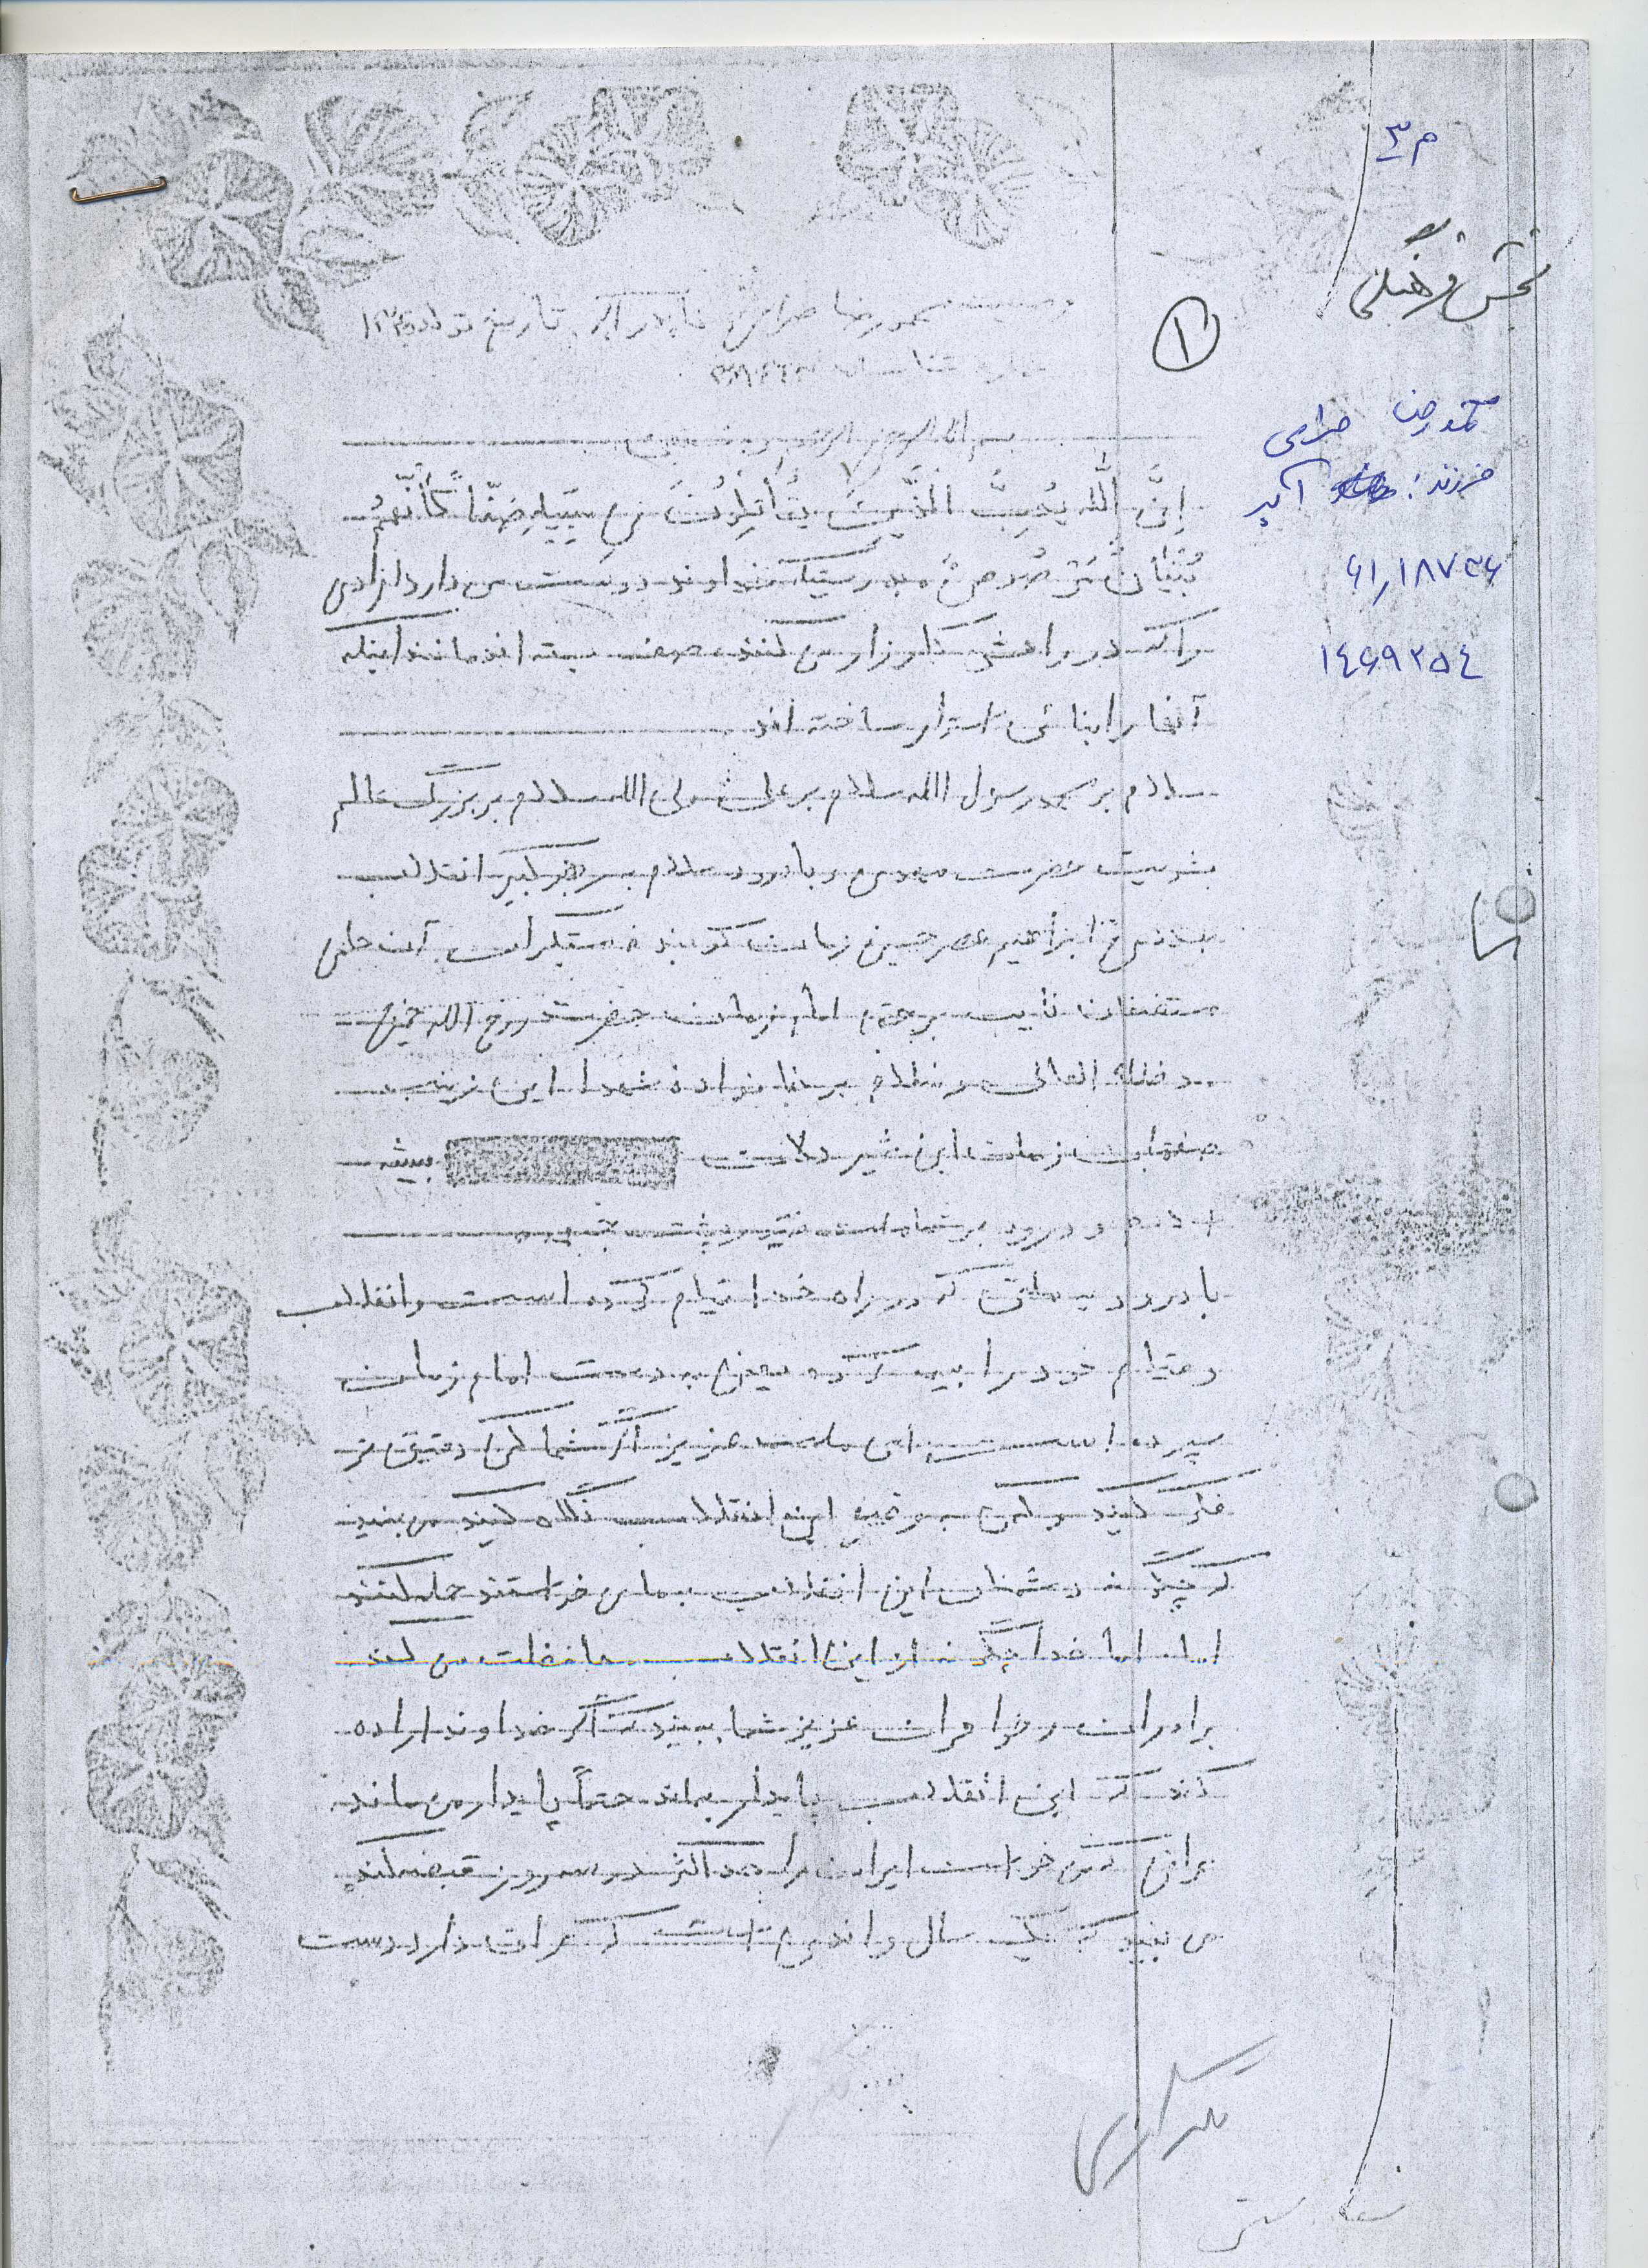 م ۳
بخش فرهنگی
۱
محمدرضا
فرزند: اکبر
۶۱٫۱۸۷۲۶
۱۴۶۹۲۵۴
وصیت محمدرضا پدر اکبر تاریخ تولد
بسم الله الرحمن الرحیم
اِنَّ اللهَ یُحِبُّ الذَّینَ یُقاتِلوُنَ فی سَبیٖلِهِ صَفّاً کَأَنَّهُم
بُنْیانٌ مَرْصُوصٌ بدرستیکه خداوند دوست می دارد افرادی
را که در راهش کارزار می کنند صف بسته اند مانند اینکه
آنها را بنائی استوار ساخته اند
سلام بر محمد رسول الله سلام بر علی ولی الله سلام بر بزرگ عالم
بشریت حضرت مهدی و با درود و سلام بر رهبر کبیر انقلاب
ابراهیم عصر حسین زمان کوبنده مستکبران حامی
مستضعفان نایب برحق امام زمان حضرت روح الله خمینی
مدظله العالی و سلام بر خانواده شهدا این زینب
صفتان زمان این شیر دلان بیشه
و درود بر شما ملت
با درود به ملتی که در راه خدا قیام کرده است و انقلاب
و قیام خود را بیمه کرده یعنی به دست امام زمان
سپرده است ای ملت عزیز اگر شما کمی دقیق تر
فکر کنید و کمی به وضع این انقلاب نگاه کنید می بینید
که چگونه دشمنان این انقلاب به ما می خواستند حمله کنند
اما خدا چگونه از این انقلاب محافظت می کند
برادران و خواهران عزیز شما ببینید که اگر خداوند اراده
کند که این انقلاب پایدار بماند حتماً پایدار می ماند
عراقی که می خواست ایران را حداکثر در سه روز قبضه کند
می بینید که یک سال و اندی است که عراق دارد دست